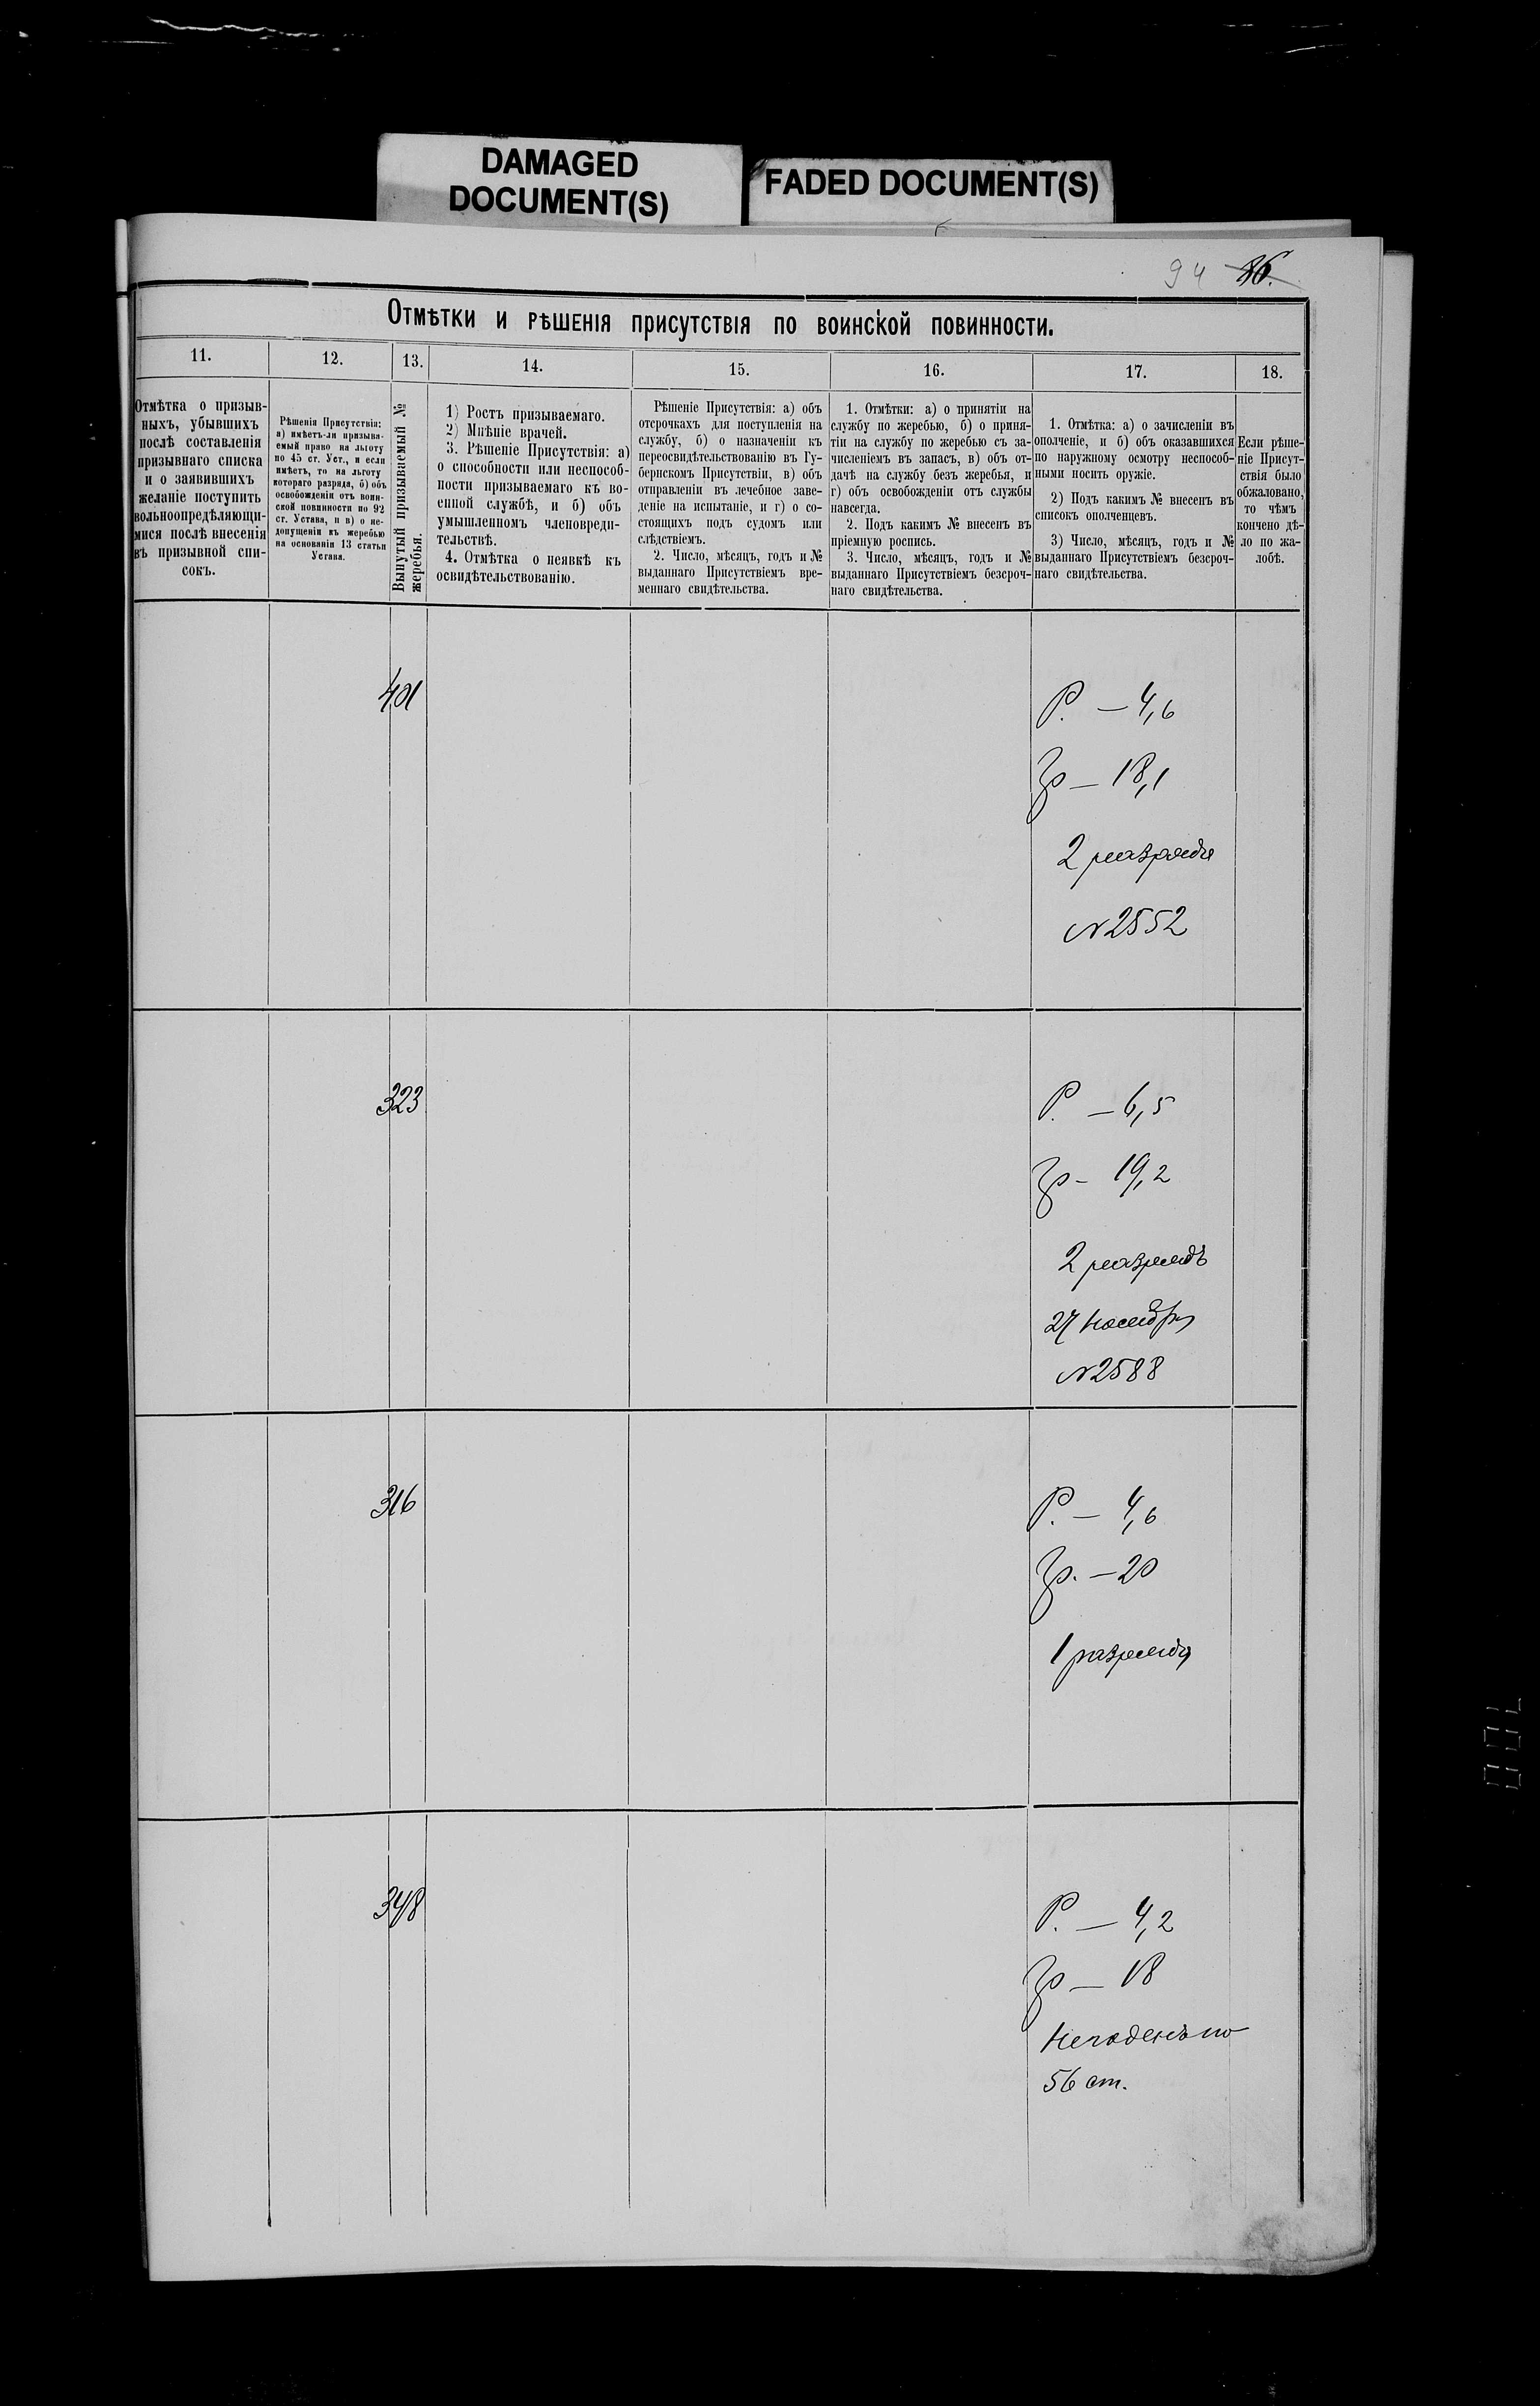 DAMAGED
DOCUMENT(S)
FADED DOCUMENT(S)
94 86.
Отмѣтки и рѣшенія присутствія по воинской повинности.
11.
12.
13.
14.
15.
16.
17.
18.
Отмѣтка о призыв-
ныхъ, убывшихъ
послѣ составленія
призывнаго списка
и о заявившихъ
желаніе поступить
вольноопредѣляющи-
мися послѣ внесенія
въ призывной спи-
сокъ.
Рѣшенія Присутствія:
а) имѣетъ-ли призыва-
емый право на льготу
по 45 ст. Уст., и если
имѣетъ, то на льготу
котораго разряда, б) объ
освобожденіи отъ воин-
ской повинности по 92
ст. Устава, и в) о не-
допущеніи къ жеребью
на основаніи 13 статьи
Устава.
Вынутый призываемый №
жеребья.
1) Ростъ призываемаго.
2) Мнѣніе врачей.
3. Рѣшеніе Присутствія: а)
о способности или неспособ-
ности призываемаго къ во-
енной службѣ, и б) объ
умышленномъ членовреди-
тельствѣ.
4. Отмѣтка о неявкѣ къ
освидѣтельствованію.
Рѣшеніе Присутствія: а) объ
отсрочкахъ для поступленія на
службу, б) о назначеніи къ
переосвидѣтельствованію въ Гу-
бернскомъ Присутствіи, в) объ
отправленіи въ лечебное заве-
деніе на испытаніе, и г) о со-
стоящихъ подъ судомъ или
слѣдствіемъ.
2. Число, мѣсяцъ, годъ и №
выданнаго Присутствіемъ вре-
меннаго свидѣтельства.
1. Отмѣтки: а) о принятіи на
службу по жеребью, б) о приня-
тіи на службу по жеребью съ за-
численіемъ въ запасъ, в) объ от-
дачѣ на службу безъ жеребья, и
г) объ освобожденіи отъ службы
навсегда.
2. Подъ какимъ № внесенъ въ
пріемную роспись.
3. Число, мѣсяцъ, годъ и №
выданнаго Присутствіемъ безсроч-
наго свидѣтельства.
1. Отмѣтка: а) о зачисленіи въ
ополченіе, и б) объ оказавшихся
по наружному осмотру неспособ-
ными носить оружіе.
2) Подъ какимъ № внесенъ въ
списокъ ополченцевъ.
3) Число, мѣсяцъ, годъ и №
выданнаго Присутствіемъ безсроч-
наго свидѣтельства.
Если рѣше-
ніе Присут-
ствія было
обжаловано,
то чѣмъ
кончено дѣ-
ло по жа-
лобѣ.
401
Р. — 4,6
Гр — 18,1
2 разряда
№ 2552
323
Р. — 6,5
Гр — 19,2
2 разрядъ
27 Ноября
№ 2588
316
Р. — 4,6
Гр. — 20
1 разряда
348
Р. — 4,2
Гр — 18
Негоденъ по
56 ст.